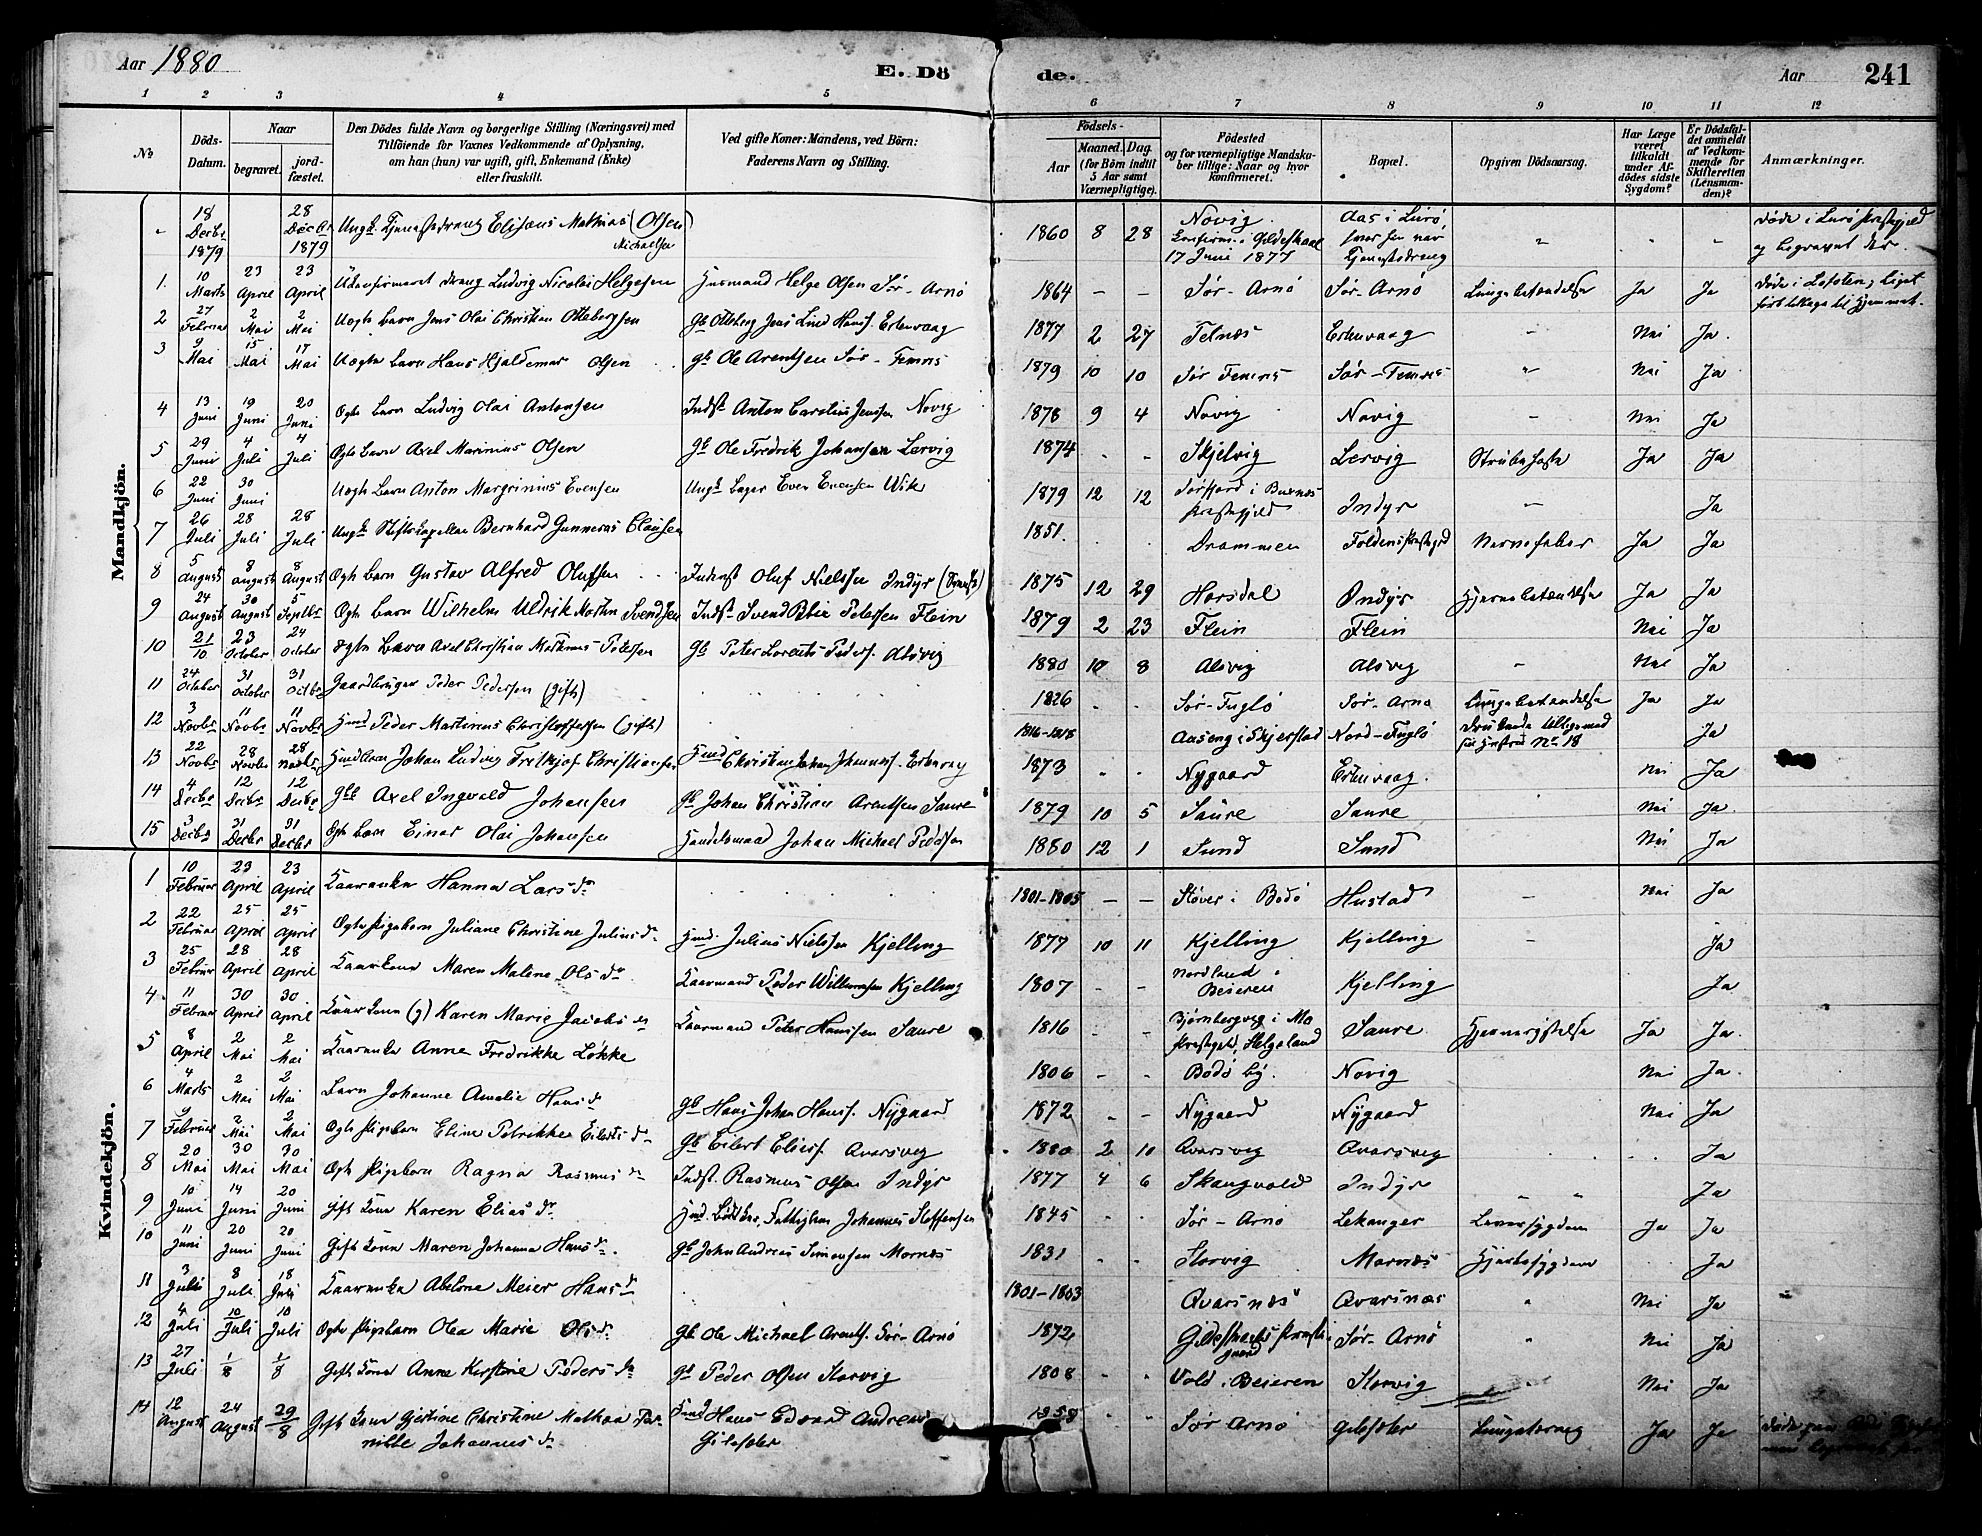 Aar 1880
E. Dö
de.
Aar
241
1 2 3 4 5 6 7 8 9 10 11 12
No
Döds-Datum.
Naar
begravet.
jord-fæstet.
Den Dödes fulde Navn og borgerlige Stilling (Næringsvei) med
Tilföiende for Voxnes Vedkommende af Oplysning,
om han (hun) var ugift, gift, Enkemand (Enke)
eller fraskilt.
Ved gifte Koner: Mandens, ved Börn:
Faderens Navn og Stilling.
Födsels-
Aar
Maaned. Dag.
(for Börn indtil
5 Aar samt
Værnepligtige).
Födested
og for værnepligtige Mandska-
ber tillige: Naar og hvor
konfirmeret.
Bopæl.
Opgiven Dödsaarsag.
Har Læge
været
tilkaldt
under Af-
dödes sidste
Sygdom?
Er Dödsfal-
det anmeldt
af Vedkom-
mende for
Skifteretten
(Lensman-
den)?
Anmærkninger.
Mandkjön.
18 Decbr 1879 28 Decbr 1879 Ungk. Tjenestedreng Elisæus Mathias (Olsen) Michaelsen 1860 8 28 Novig Konfirm. i Gildeskaal 17 Juni 1877 Aas i Lurö hvor han var Tjenestedreng " " " Döde i Lurö Præstegjeld og begravet der.
1. 10 Marts 23 April 23 April Ukonfirmeret dreng Ludvig Nicolai Helgesen Husmand Helge Olsen Sör-Arnö 1864 - - Sör-Arnö Sör-Arnö Lungebetændelse Ja Ja Döde i Lofoten, Liget fört tilbage til Hjemmet.
2 27 Februar 2 Mai 2 Mai Uægte Barn Jens Olai Christian Ottebergsen Gb Otteberg Jens Lind Hans. Ertenvaag 1877 2 27 Telnæs Ertenvaag " Nei Ja.
3 9 Mai 15 Mai 17 Mai Uægte Barn Hans Hjaldemar Olsen gb Ole Arentsen Sör-Femris 1879 10 10 Sör Femris Sör-Femris " Nei Ja
4 13 Juni 19 Juni 20 Juni Ægte Barn Ludvig Olai Antonsen Indst Anton Carolius Jenssen Novig 1878 9 4 Novig Novig " Nei Ja
5 29 Juni 4 Juli 4 Juli Ægte Barn Axel Marinius Olsen Gb Ole Fredrik Johansen Lervig 1874 - - Skjelvig Lervig Strubehoste Ja Ja
6 22 Juni 30 Juni Uægte Barn Anton Margrinius Evensen Ungk Bager Even Evensen Wik 1879 12 12 Sörfjord i Buxnæs Præstegjeld Indyr " Ja
7 26 Juli 28 Juli 28 Juli Ungk Stiftskapellan Bernhard Gunnerus Clausen 1851 Drammen Foldens Præstegjd Nervefeber Ja Ja
8 5 August 8 August 8 August Ægte Barn Gustav Alfred Olufsen Inderst Oluf Nielssen Indyr 1875 12 29 Horsdal Indyr Hjernebetændelse Ja Ja
9 24 August 30 August 5 Septbr Ægte Barn Wilhelm Uldrik Morten Svendsen Indst Svend Petersen Flein 1879 2 23 Flein Flein Nei Ja
10 21/10 23 October 24 October Ægte Barn Axel Christian Mathæus Petersen Gb Peter Lorents Peders. Alsvig 1880 10 8 Alsvig Alsvig " Nei Ja
11 24 October 31 October 31 Octbr Gaardbruger Peder Pedersen (gift) 1826 Sör-Fuglö Sör-Arnö Lungebetændelse Ja Ja
12 3 Novbr 11 Novbr 11 Novbr Husmd Peder Martinius Christoffersen (gift) 1816-1818 Aaseng i Skjerstad Nord-Fuglö No 18 Ja
13 22 Novbr 28 Novbr 28 Novbr Johan Ludvig Fritkjof Christiansen Husmd Christian Johan Johanness. Ertenvaag 1873 " " Nygaard Ertenvaag. Nei Ja
14 4 Decbr 12 Decbr 12 Decbr Axel Ingvald Johansen gb Johan Christian Arentsen Saure 1879 10 5 Saure Saure Nei Ja
15 3 Decbr 31 Decbr 31 Decbr Ægte Barn Einar Olai Johansen Handelsmand Johan Michael Pedersen 1880 12 1 Sund Sund Nei Ja
Kvindekjön.
1 10 Februar 23 April 23 April Kaarenke Hanna Larsdr 1801-1805 - - Stöver i Bodö Hustad " Nei Ja
2 22 Februar 25 April 25 April Ægte Pigebarn Juliane Christine Juliusdr Husmd. Julius Nielssen Kjelling 1877 10 11 Kjelling Kjelling " Ja
3 25 Februar 28 April 28 April Kaarkone Maren Malene Olsdr Kaarmand Peder Willumsen Kjelling 1807 - - Nordland i Beieren Kjelling Ja
4 11 Februar 30 April 30 April Kaarkone (g) Karen Marie Jacobsdr Kaarmand Peter Hanssen Saure 1816 - Bjørnbergvig i Mo Præstegjeld, Helgeland Saure Ja Ja.
5 8 April 2 Mai 2 Mai Kaarenke Anne Fredrikke Løkke 1806 - - Bodö by. Novig Nei Ja.
6 4 Marts 2 Mai 2 Mai Barn Johanne Amalie Hansdr Gb Hans Johan Hanss. Nygaard 1872 - - Nygaard Nygaard Nei Ja
7 9 Februar 2 Mai 2 Mai Ægte Pigebarn Eline Petrikke Eilertsdr Gb Eilert Elias. Qvarsvig 1880 2 10 Qvarsvig Qvarsvig Ja
8 20 Mai 30 Mai 30 Mai Ægte Pigebarn Ragna Rasmusdr Indst. Rasmus Olsen Indyr 1877 4 6 Skaugvold Indyr " " Ja
9 10 Juni 14 Juni 20 Juni Gift Kone Karen Eliasdr Husmd. Bødker, Fattiglem Johannes Stoffersen 1845 Sör-Arnö Lekanger Leversygdom Ja Ja
10 11 Juni 20 Juni 20 Juni Gift Kone Maren Johanna Hansdr. Gb John Andreas Simonsen Mornæs 1831 Storvig Mornæs Hjertesygdom Ja
11 3 Juli 8 Juli 18 Juli Kaarenke Abelone Meier Hansdr 1801-1803 Qvarsnæs Qvarsnæs " Nei Ja
12 4 Juli 10 Juli 10 Juli Ægte Pigebarn Olea Marie Olsdr Gb Ole Michael Arents. Sör-Arnö 1872 Gildeskaals Præstegaard Sör-Arnö " Nei Ja
13 27 Juli 1/8 1/8 Gift Kone Anne Kerstine Pedersdr Gb Peder Olsen Storvig 1808 " " Vold i Beieren Storvig Nei Ja
14 12 August 24 August 29/8 Gift Kone Gjertine Christine Mathea Pernille Johannesdr Husmd Hans Edvard Andreas Gildeskaal 1858 " " Sör Arnö Ja Ja